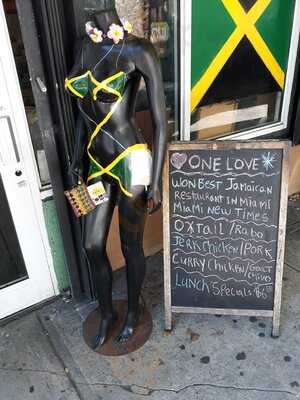 ONE LOVE
WON BEST JAMAICAN
RESTAURANT IN MIAMI
MIAMI NEW TIMES
OXTAIL/RABO
JERK CHICKEN/PORK
CURRY CHICKEN/GOAT
CHIVO
LUNCH SPECIALS $6